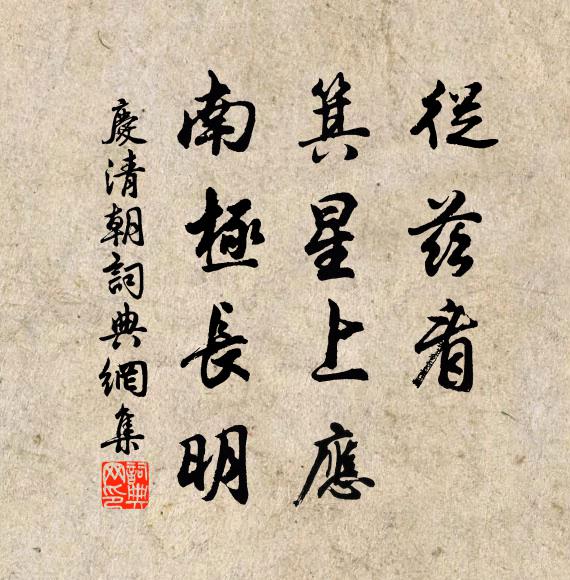 從茲看
箕星上應
南極長明
慶清朝詞典網集
詞典网印